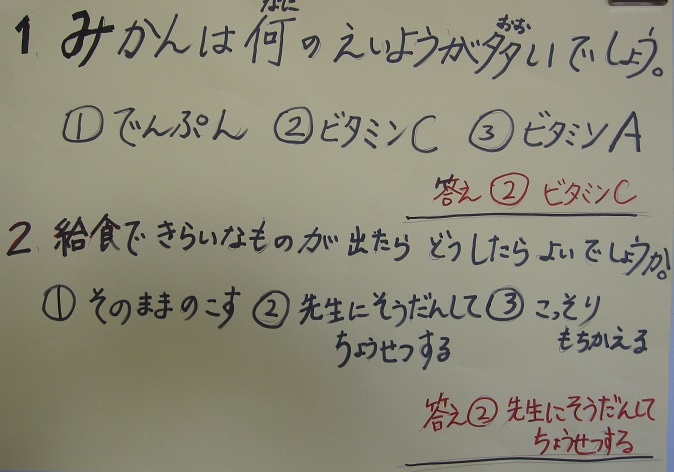 1 みかんは何のえいようが多いでしょう。
① でんぷん ② ビタミンC ③ ビタミンA
答え ② ビタミンC
2 給食できらいなものが出たらどうしたらよいでしょうか。
① そのままのこす ② 先生にそうだんして ③ こっそり
ちょうせつする もちかえる
答え ② 先生にそうだんして
ちょうせつする